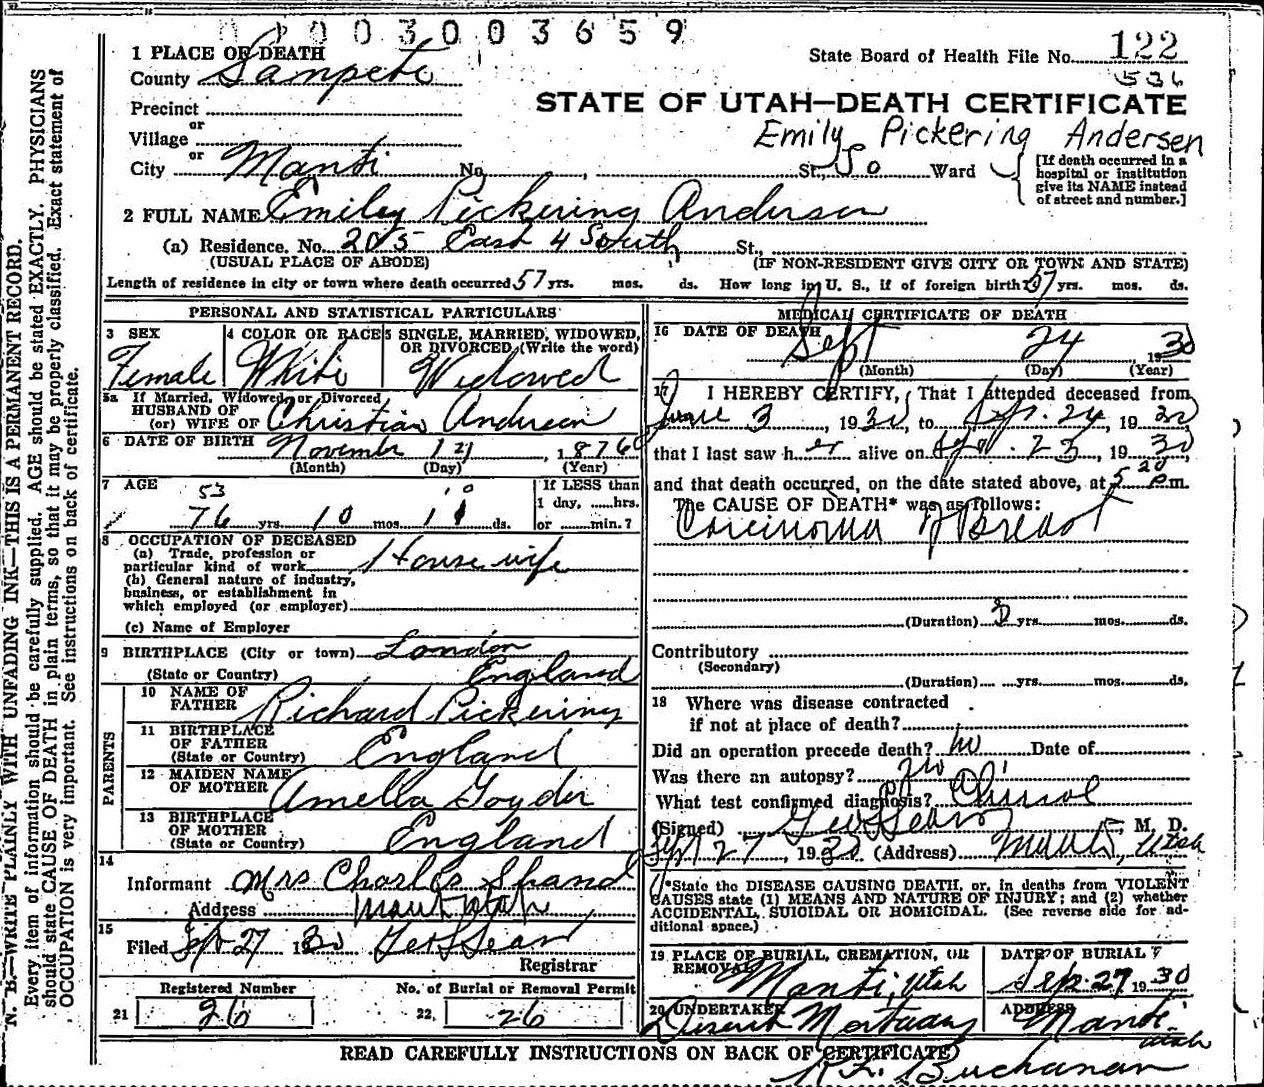 0 1 0 0 3 0 0 3 6 5 9
1 PLACE OF DEATH
State Board of Health File No. 122
536
County Sanpete
Precinct
STATE OF UTAH—DEATH CERTIFICATE
or
Village
Emily Pickering Andersen
or
City Manti No. , St., So Ward
[If death occurred in a
hospital or institution
give its NAME instead
of street and number.]
2 FULL NAME Emily Pickering Anderson
(a) Residence. No. 205 East 4 South St.,
(USUAL PLACE OF ABODE) (IF NON-RESIDENT GIVE CITY OR TOWN AND STATE)
Length of residence in city or town where death occurred 57 yrs. mos. ds. How long in U. S., if of foreign birth? 57 yrs. mos. ds.
PERSONAL AND STATISTICAL PARTICULARS
3 SEX
Female
4 COLOR OR RACE
White
5 SINGLE, MARRIED, WIDOWED,
OR DIVORCED (Write the word)
Widowed
5a If Married, Widowed, or Divorced
HUSBAND OF
(or) WIFE OF Christian Anderson
6 DATE OF BIRTH November 14, 1876
(Month) (Day) (Year)
7 AGE
53 10
76 yrs. 10 mos. 11 ds.
If LESS than
1 day, ......hrs.
or ......min.?
8 OCCUPATION OF DECEASED
(a) Trade, profession or
particular kind of work Housewife
(b) General nature of industry,
business, or establishment in
which employed (or employer)
(c) Name of Employer
9 BIRTHPLACE (City or town) London
(State or Country) England
PARENTS
10 NAME OF
FATHER Richard Pickering
11 BIRTHPLACE
OF FATHER
(State or Country) England
12 MAIDEN NAME
OF MOTHER Amella Goyder
13 BIRTHPLACE
OF MOTHER
(State or Country) England
14
Informant Mrs Charles Shand
Address Manti Utah
15
Filed Sept 27 1930 Geo L Sears
Registrar
Registered Number
21 26
No. of Burial or Removal Permit
22. 26
MEDICAL CERTIFICATE OF DEATH
16 DATE OF DEATH
Sept 24, 1930
(Month) (Day) (Year)
17 I HEREBY CERTIFY, That I attended deceased from
June 3, 1930, to Sep. 24, 1930
that I last saw her alive on Sep. 23, 1930,
and that death occurred, on the date stated above, at 5 20 p.m.
The CAUSE OF DEATH* was as follows:
Carcinoma of Breast
(Duration) 2 yrs. mos. ds.
Contributory
(Secondary)
(Duration) yrs. mos. ds.
18 Where was disease contracted
if not at place of death?
Did an operation precede death? no Date of
Was there an autopsy? no
What test confirmed diagnosis? Clinical
(Signed) Geo L Sears, M. D.
Sept 27, 1930 (Address) Manti, Utah
*State the DISEASE CAUSING DEATH, or, in deaths from VIOLENT
CAUSES state (1) MEANS AND NATURE OF INJURY; and (2) whether
ACCIDENTAL, SUICIDAL OR HOMICIDAL. (See reverse side for ad-
ditional space.)
19 PLACE OF BURIAL, CREMATION, OR
REMOVAL Manti, Utah
DATE OF BURIAL
Sep. 27 1930
20 UNDERTAKER
Deseret Mortuary
ADDRESS
Manti
Utah
READ CAREFULLY INSTRUCTIONS ON BACK OF CERTIFICATE)
Buchanan
N. B.—WRITE PLAINLY WITH UNFADING INK—THIS IS A PERMANENT RECORD.
Every item of information should be carefully supplied. AGE should be stated EXACTLY. PHYSICIANS
should state CAUSE OF DEATH in plain terms, so that it may be properly classified. Exact statement of
OCCUPATION is very important. See instructions on back of certificate.